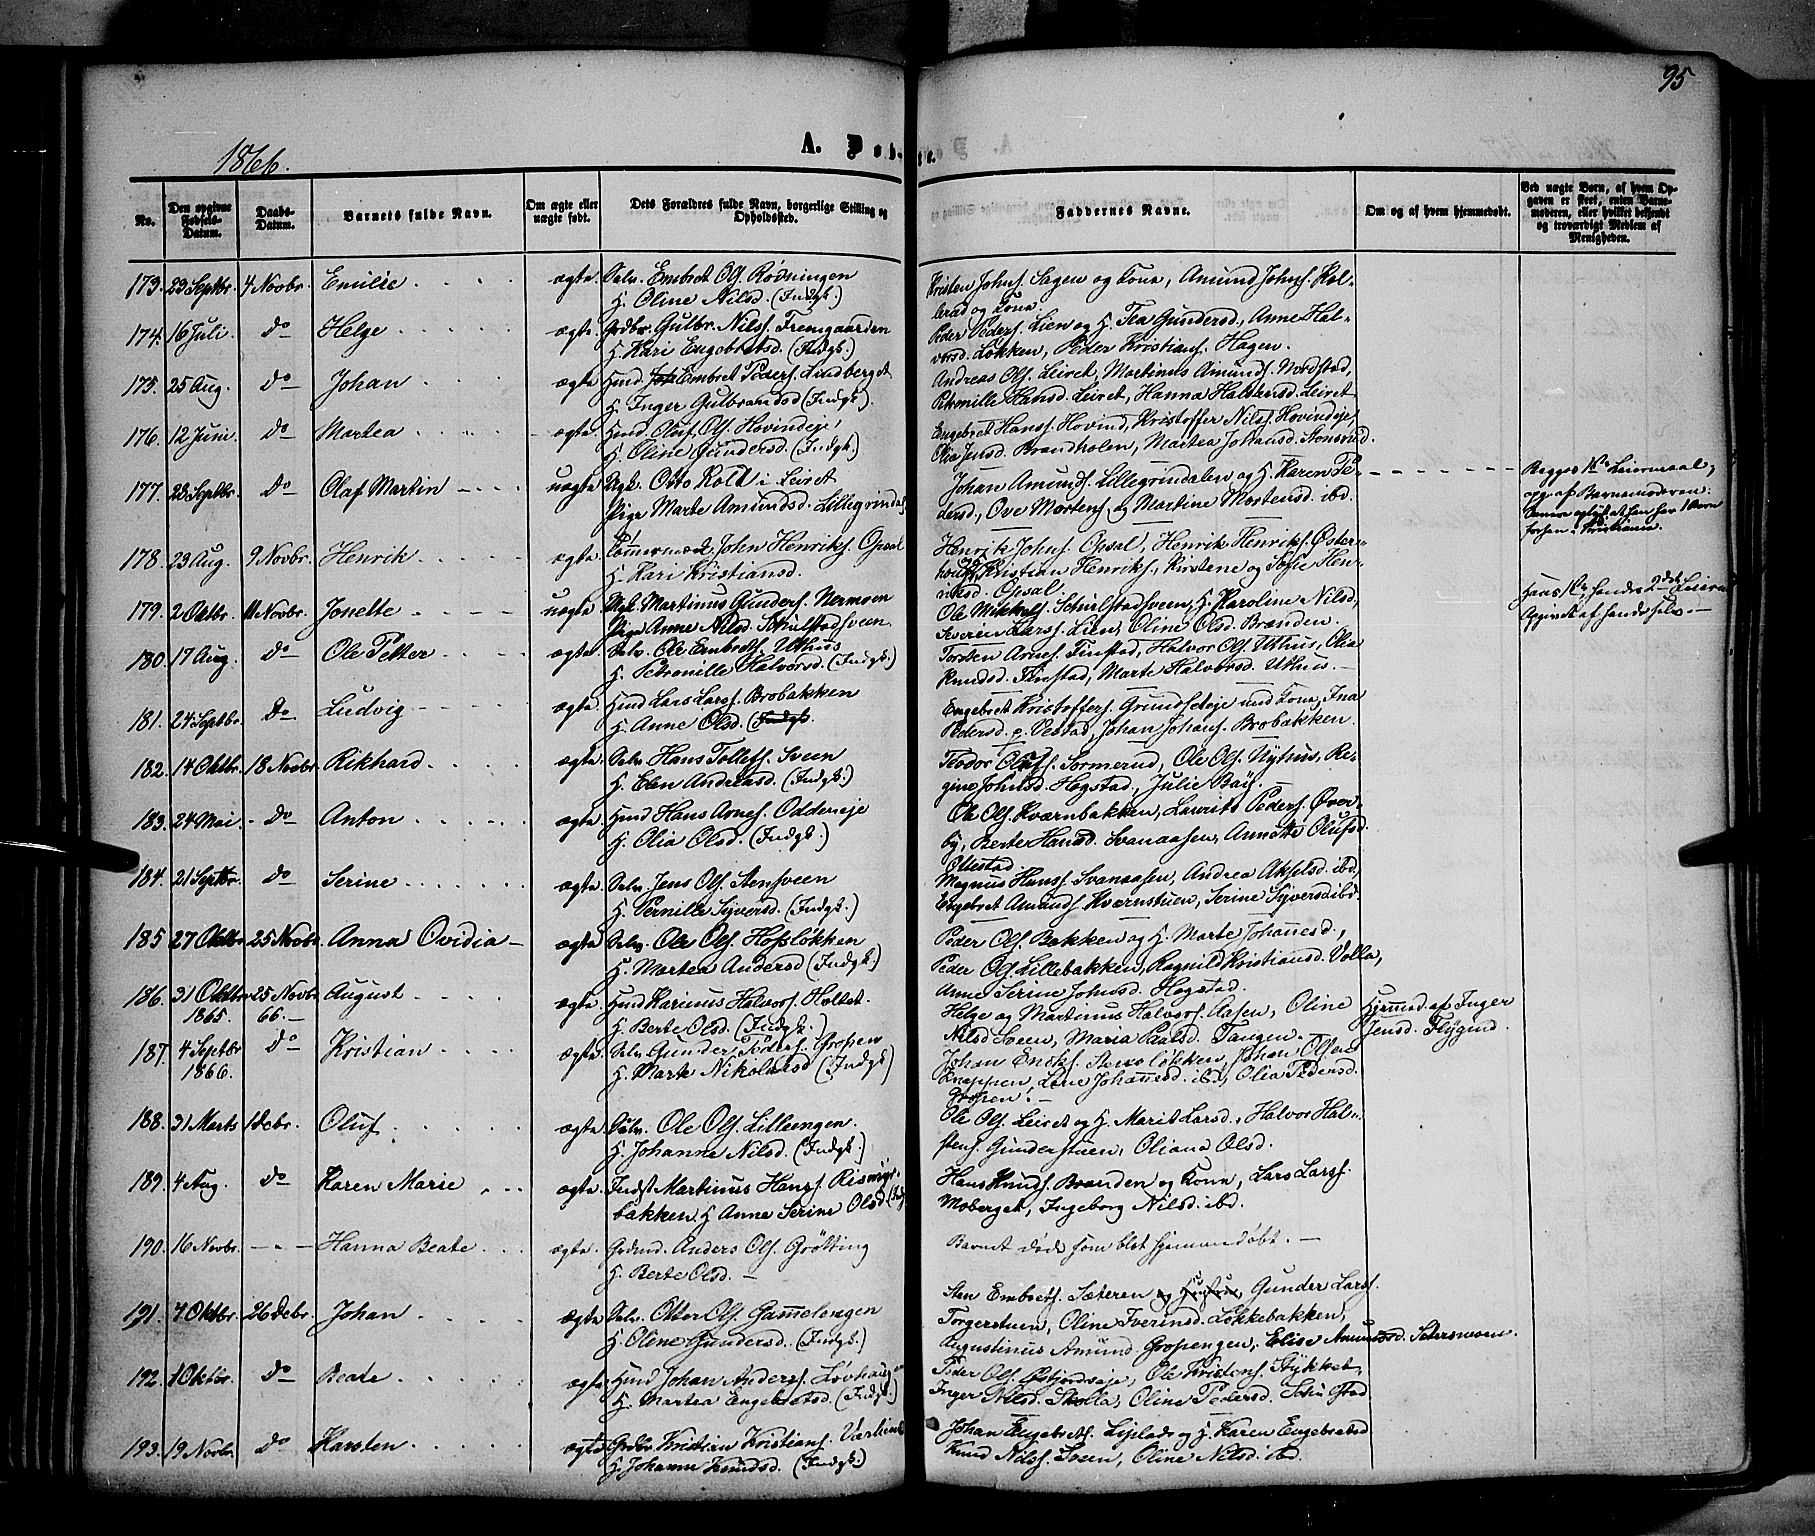 95
1866.
A. Døbte.
No.
Den opgivne Fødsels-Datum.
Daabs-Datum.
Barnets fulde Navn.
Om ægte eller uægte født.
Dets Forældres fulde Navn, borgerlige Stilling og Opholdssted.
Faddernes Navne.
Om og af hvem hjemmedøbt.
Ved uægte Børn, af hvem Opgaven er skeet, enten Barnemoderen, eller hvilket bekjendt og troværdigt Medlem af Menigheden.
173. 23 Septbr. 4 Novbr. Emilie ægte. Selv. Embret Ols. Rødningen
H. Oline Nilsd. (Indgk.)
Kristen Johns. Sagen og Kone, Amund Johns. Kol-
lerad og Kone
174. 16 Juli. do Helge ægte. Grdbr. Gulbr. Nilss. Fremgaarden
H. Kari Engebretsd. (Indgk.)
Peder Peders. Lien og H. Tea Gundersd., Anne Hal-
vorsd. Løkken, Peder Kristians. Hagen.
175. 25 Aug. do Johan ægte. Hmd. Embret Peders. Lindberget
H. Inger Gulbrandsd (Indgk.)
Andreas Ols. Leiret, Martinus Amunds. Nordstad,
Petronille Hansd. Leiret, Hanna Halstensd. Leiret
176. 12 Juni do Martea ægte. Hmd. Oluf Ols. Hovindeje,
H. Oline Gundersd. (Indgk.)
Engebret Hanss. Hovind, Kristoffer Nilss. Hovindeje,
Olia Jensd. Brændholen, Martea Johansd. Stensrud.
177. 28 Septbr. do Olaf Martin uægte. Ugk. Otto Rold i Leiret
Pige Marte Amundsd. Lillegrindal
Johan Amunds. Lillegrindalen og H. Karen Pe-
dersd., Ove Mortens. og Martine Mortensd. ibd.
Begges 1ste Leiermaal,
opg. af Barnemoderen.
178. 23 Aug. 9 Novbr. Henrik ægte. John Henriks. Opsal
H. Kari Kristiansd.
Henrik Johns. Opsal, Henrik Henriks. Øster-
haug, Kristian Henriks., Kirstene og Sofie Hen-
riksd. Opsal.
179. 2 Oktbr. 11 Novbr. Jonette uægte Ugk. Martinus Gunders. Nermoen
Pige Anne Nilsd. Schulstadsveen
Ole Mikkels. Schulstadsveen, H. Karoline Nilsd,
Severin Larss. Lien, Oline Olsd. Brænden.
Hans 1ste hendes 2det Leierm.
Opgivet af hende selv.
180. 17 Aug. do Ole Petter ægte. Selv. Ole Embrets. Uthus
H. Petronille Halvorsd. (Indgk.)
Torsten Arnes. Finstad, Halvor Ols. Uthus, Olia
Knudsd. Finstad, Marte Halvorsd. Uthus.
181. 24 Septbr. do Ludvig ægte. Hmd Lars Larss. Brobakken
H. Anne Olsd. (Indgk.
Engebret Kristoffers. Grundseteje med Kone, Ina
Pedersd. p. Vestad, Johan Johans. Brobakken.
182. 14 Oktbr. 18 Novbr. Rikhard ægte. Selv. Hans Tollefs. Sveen
H. Elen Andreasd. (Indgk.)
Teodor Olufs. Sormerud, Ole Ols. Nyhus, Re-
gine Johnsd. Hogstad, Julie Bøy.
183. 24 Mai do Anton ægte. Hmd Hans Arnes. Oddereje
H. Olia Olsd. (Indgk.)
Ole Ols. Kværnbakken, Laurits Peders. Øver-
by, Berte Hansd. Svanaasen, Annette Olufsd.
Ollestad
184. 21 Septbr. do Serine ægte. Selv. Jens Ols. Stensveen
H. Pernille Syversd. (Indgk.)
Magnus Hanss. Svanaasen, Andrea Akselsd. ibd,
Engebret Amunds. Kværnstuen, Serine Syversd ibd.
185 27 Oktbr 25 Novbr Anna Ovidia ægte. Selv. Ole Ols. Hofsløkken
H. Martea Andersd (Indgk.)
Peder Ols. Bakken og H. Marte Johannesd.,
Peder Ols. Lillebakken, Ragnild Kristiansd. Volla,
Anne Serine Johnsd. Hogstad.
186. 31 Oktbr 1865. 25 Novbr 66. August ægte. Hmd Karinus Halvors. Holtet.
H. Berte Olsd. (Indgk.)
Helge og Martinus Halvors. Aasen, Oline
Nilsd Sveen, Maria Paalsd. Tangen.
Hjemmed. af Inger
Jensd. Flygind.
187. 4 Septbr 1866. do Kristian ægte. Selv. Gunder Peders. Gropen
H. Marte Nikolaisd (Indgk.)
Johan Ericks. Stensløkken, Johan Olsen
Knappen, Lene Johannesd. ibd, Olia Pedersd.
Gropen.
188. 31 Marts 1 Debr. Oluf. ægte. Selv. Ole Ols. Lilleengen.
H. Johanne Nilsd. (Indgk.)
Ole Ols. Leiret og H. Marit Larsd., Halvor Hal-
stens. Gunderstuen, Oliana Olsd.
189. 4 Aug. do Karen Marie ægte. Indst Martinus Hanss. Risming-
bakken H Anne Serine Olsd (Indg
Hans Knuds. Brænden og Kone, Lars Larss.
Moberget, Ingeborg Nilsd. ibd.
190. 16 Novbr. Hanna Beate ægte. Grdmd. Anders Ols. Grøtting
H. Berte Olsd.
Barnet døde som blot hjemmedøbt.
191. 4 Oktbr. 26 Debr. Johan ægte Selv. Otter Ols. Gammelengen
H. Oline Gundersd. (Indgk.)
Sten Embrets. Sæteren Gunder Larss.
Torgerstuen, Oline Iverinsd. Løkkebakken,
Augustinus Amund. Gropengen, Elise Amundsd. Sæterenoen.
192. 1 Oktbr. do Beate ægte Hmd Johan Anderss. Løvhaug
H. Martea Engebretsd. (Indgk.)
Peder Ols. Østjordseje, Ole Kristens. Stykket,
Inger Nilsd. Skolla, Oline Pedersd.
193. 19 Novbr. do Karsten ægte Grdbr. Kristian Kristians. Vestlund
H. Johanne Knudsd. (Indgk.)
Johan Engebrets. Liplads og H. Karen Engebretsd
Knud Nilss. Sveen, Oline Nilsd. ibd.